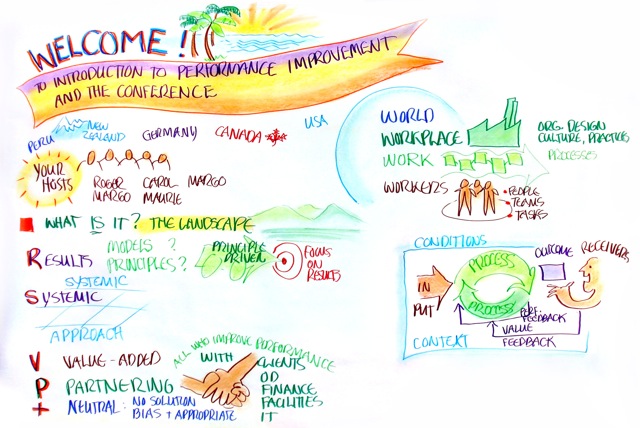 WELCOME!
TO INTRODUCTION TO PERFORMANCE IMPROVEMENT
AND THE CONFERENCE
PERU
NEW
ZEALAND
GERMANY
CANADA
USA
YOUR
HOSTS
ROGER CAROL MARGO
MARGO MAURIE
WHAT IS IT? THE LANDSCAPE
RESULTS
MODELS?
PRINCIPLES?
PRINCIPLE
DRIVEN
FOCUS
ON
RESULTS
SYSTEMIC
S SYSTEMIC
APPROACH
V VALUE-ADDED
P PARTNERING
+ NEUTRAL: NO SOLUTION
BIAS + APPROPRIATE
ALL WHO IMPROVE PERFORMANCE
WITH
CLIENTS
OD
FINANCE
FACILITIES
IT
WORLD
WORKPLACE
ORG. DESIGN
CULTURE, PRACTICES
WORK
PROCESSES
WORKERS
• PEOPLE
• TEAMS
• TASKS
CONDITIONS
IN
PUT
PROCESS
PROCESS
OUTCOME
RECEIVERS
PERF.
FEEDBACK
VALUE
FEEDBACK
CONTEXT